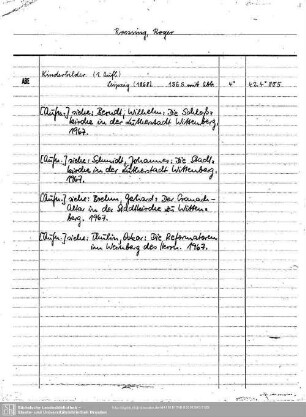 Rossing, Roger
Kinderbilder (1. Aufl.)
ABE Leipzig (1968). 136 S. mit Abb. 4° 42.4° 855
[Aufn.] siehe: Berndt, Wilhelm: Die Schloß-
kirche in der Lutherstadt Wittenberg.
1967.
[Aufn.] siehe: Schmidt, Johannes: Die Stadt-
kirche in der Lutherstadt Wittenberg.
1967.
[Aufn.] siehe: Brehm, Gerhard: Der Cranach-
Altar in der Stadtkirche zu Witten-
berg. 1967.
[Aufn.] siehe: Thulin, Oskar: Die Reformatoren
im Weinberg des Herrn. 1967.
Sächsische Landesbibliothek –
Staats- und Universitätsbibliothek Dresden